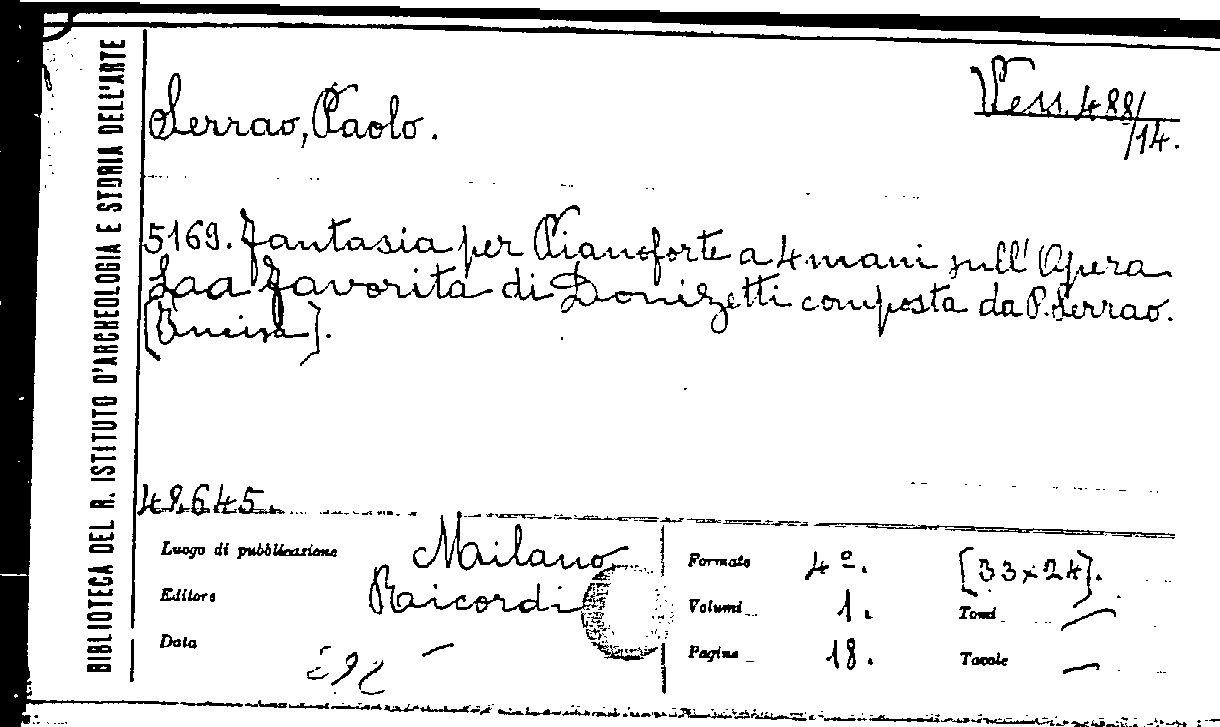 BIBLIOTECA DEL R. ISTITUTO D'ARCHEOLOGIA E STORIA DELL'ARTE
Serrao, Paolo.
Vess. 488/
/14.
5169. Fantasia per Pianoforte a 4 mani sull' Opera
Laa Favorita di Donizetti composta da P. Serrao.
[Incisa].
49.645.
Luogo di pubblicazione Milano
Editore Ricordi
Data –
Formato 4º. [33×24].
Volumi 1. Tomi –
Pagine 18. Tavole –